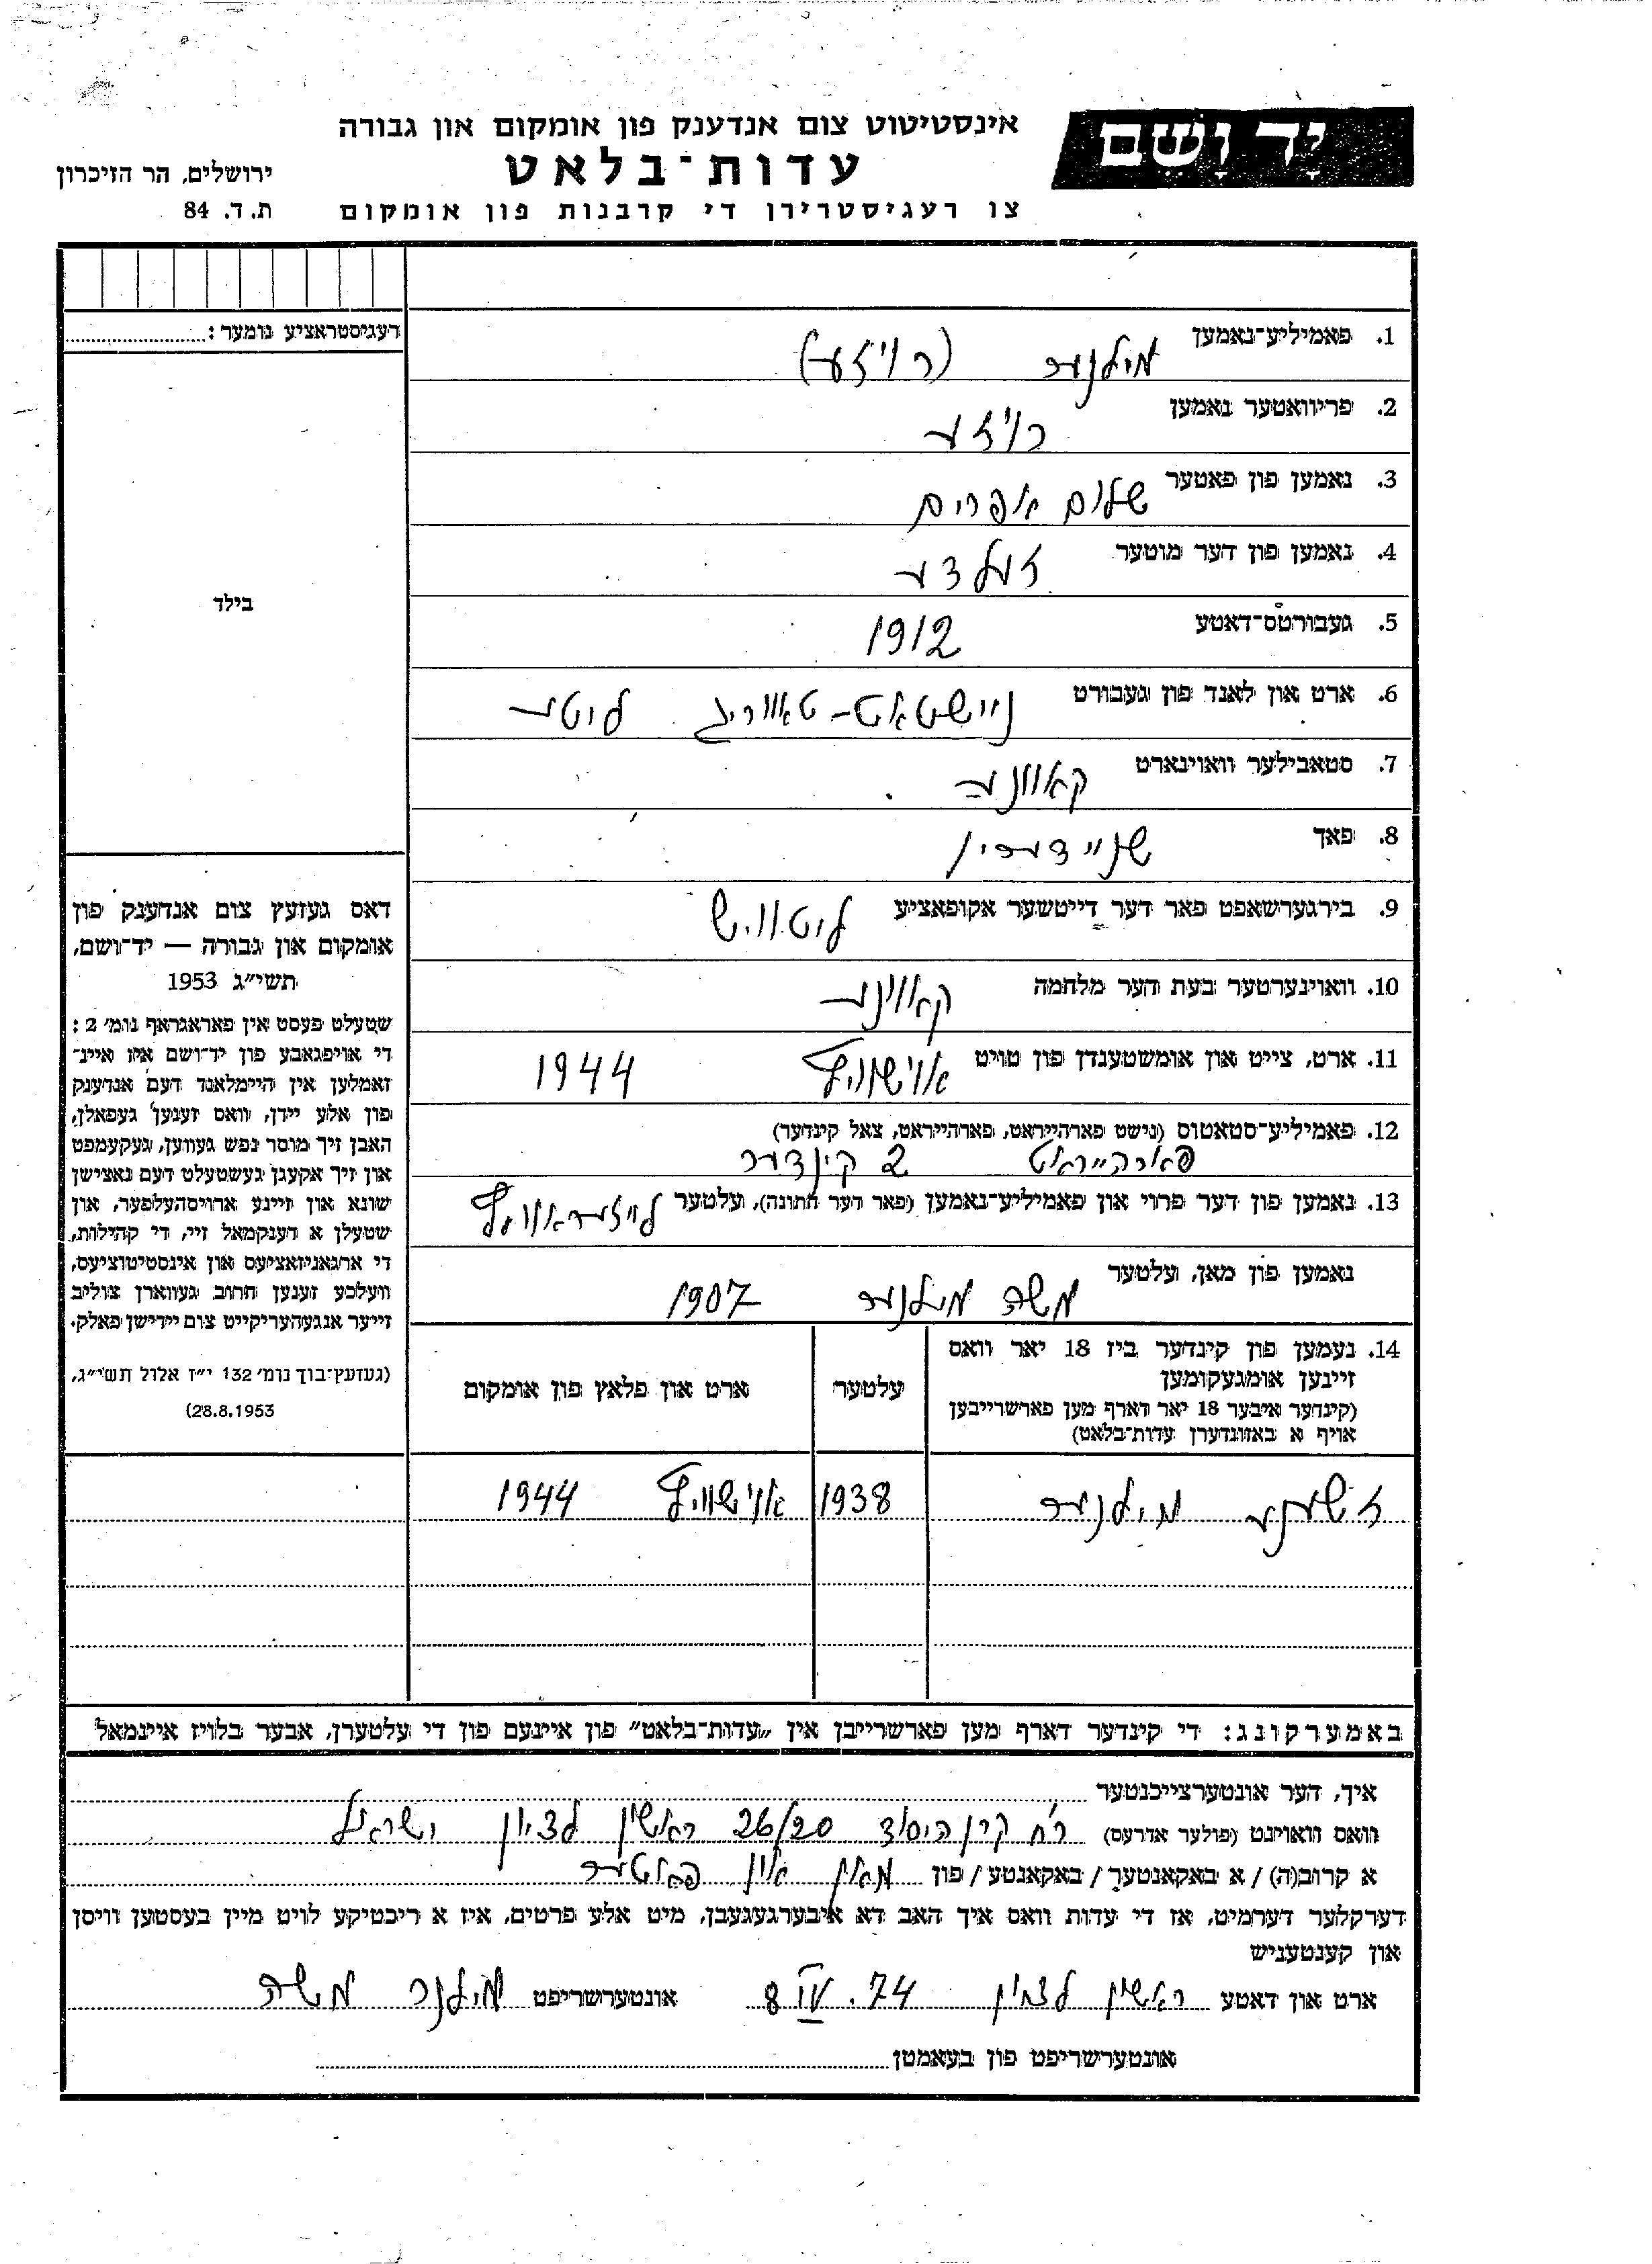 יד ושם
אינסטיטוט צום אנדענק פון אומקום און גבורה
עדות-בלאט
צו רעגיסטרירן די קרבנות פון אומקום
ירושלים, הר הזיכרון
ת. ד. 84
רעגיסטראציע נומער:
בילד
1. פאמיליע-נאמען מילנער (רויזע)
2. פריוואטער נאמען רויזע
3. נאמען פון פאטער שלום אפרים
4. נאמען פון דער מוטער זעלדע
5. געבורטס-דאטע 1912
6. ארט און לאנד פון געבורט ניישטאט-טאווריג ליטע
7. סטאבילער וואוינארט קאוונע
8. פאך שניידערין
9. בירגערשאפט פאר דער דייטשער אקופאציע ליטוויש
10. וואוינערטער בעת דער מלחמה קאוונע
11. ארט, צייט און אומשטענדן פון טויט אוישוויץ 1944
12. פאמיליע-סטאטוס (נישט פארהייראט, פארהייראט, צאל קינדער)
פארהייראט 2 קינדער
13. נאמען פון דער פרוי און פאמיליע-נאמען (פאר דער חתונה), עלטער לייזעראוויץ
נאמען פון מאן, עלטער משה מילנער 1907
14. נעמען פון קינדער ביז 18 יאר וואס
זיינען אומגעקומען
(קינדער איבער 18 יאר דארף מען פארשרייבן
אויף א באזונדערן עדות-בלאט)
עלטער
ארט און פלאץ פון אומקום
זשעניע מילנער 1938 אוישוויץ 1944
דאס געזעץ צום אנדענק פון
אומקום און גבורה — יד-ושם,
תשי״ג 1953
שטעלט פעסט אין פאראגראף נומ׳ 2:
די אויפגאבע פון יד-ושם איז איינ-
זאמלען אין היימלאנד דעם אנדענק
פון אלע יידן, וואס זענען געפאלן,
האבן זיך מוסר נפש געווען, געקעמפט
און זיך אקעגן געשטעלט דעם נאצישן
שונא און זיינע ארויסהעלפער, און
שטעלן א דענקמאל זיי, די קהילות,
די ארגאניזאציעס און אינסטיטוציעס,
וועלכע זענען חרוב געווארן צוליב
זייער אנגעהעריקייט צום יידישן פאלק.
(געזעץ-בוך נומ׳ 132 י״ז אלול תשי״ג,
28.8.1953)
באמערקונג: די קינדער דארף מען פארשרייבן אין „עדות-בלאט״ פון איינעם פון די עלטערן, אבער בלויז איינמאל
איך, דער אונטערצייכנטער
וואס וואוינט (פולער אדרעס) רח קרן היסוד 26/20 ראשון לציון ישראל
א קרוב(ה) / א באקאנטער / באקאנטע / פון מאן און פאטער
דערקלער דערמיט, אז די עדות וואס איך האב דא איבערגעגעבן, מיט אלע פרטים, איז א ריכטיקע לויט מיין בעסטען וויסן
און קענטעניש
ארט און דאטע ראשון לציון 8 IV .74 אונטערשריפט מילנר משה
אונטערשריפט פון בעאמטן